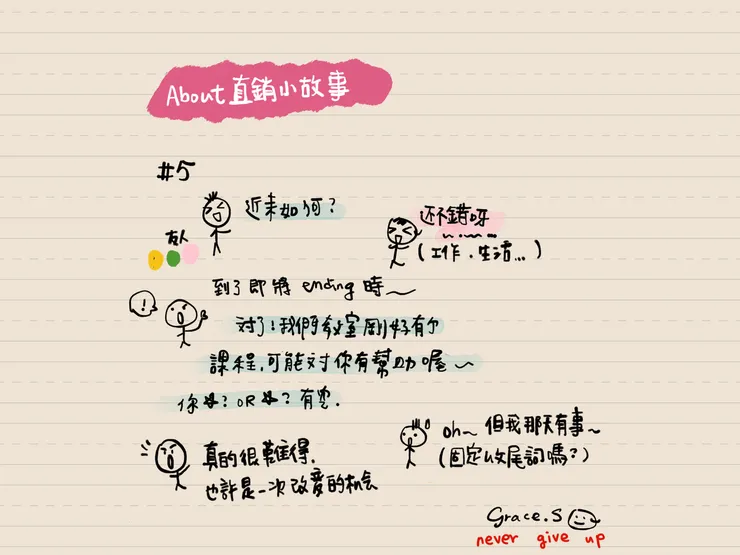 About直銷小故事
#5
近來如何?
还不錯呀
友人
(工作.生活...)
到了即將 ending 時～
!
对了!我們教室剛好有个
課程,可能对你有幫助喔～
你*?OR*?有空.
oh~ 但我那天有事~
(固定收尾詞嗎?)
真的很難得.
也許是一次改變的机会
Grace.S
never give up